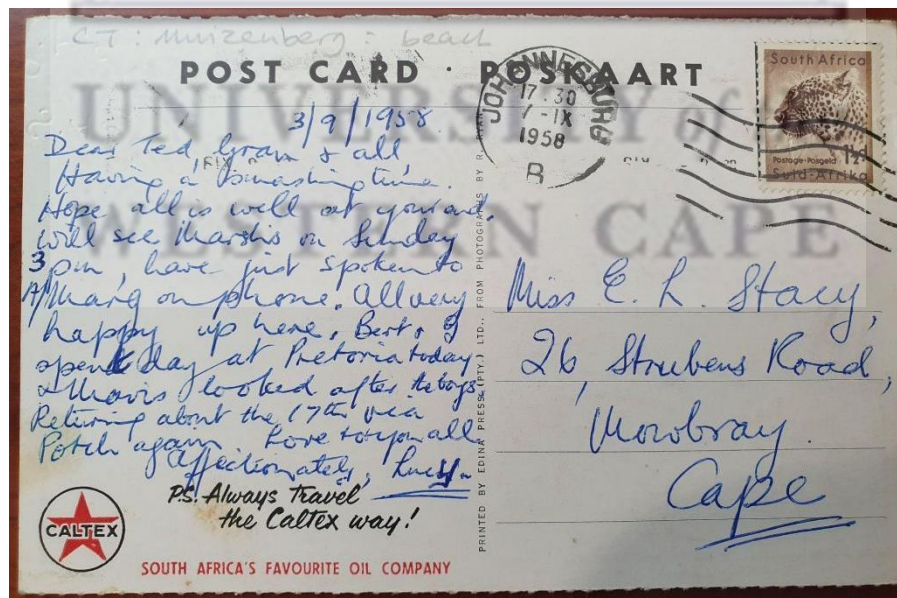 CT: Muizenberg: beach
POST CARD · POSKAART
UNIVERSITY of
WESTERN CAPE
JOHANNESBURG
17·30
-IX
1958
B
South Africa
Postage·Posgeld 1½d
Suid-Afrika
3/9/1958
Dear Ted, Gran & all
Having a smashing time.
Hope all is well at your end.
Will see on Sunday
3 pm, have just spoken to
A/Marg on phone. All very
happy up here. Bert & I
spent day at Pretoria today
& Mavis looked after the boys.
Returning about the 17th via
Potch again. Love to you all.
Affectionately,
P.S. Always Travel
the Caltex way!
CALTEX
SOUTH AFRICA'S FAVOURITE OIL COMPANY
PRINTED BY EDINA PRESS (PTY.) LTD., FROM PHOTOGRAPHS BY R.
Miss E. L. Stacy,
26, Strubens Road,
Mowbray.
Cape